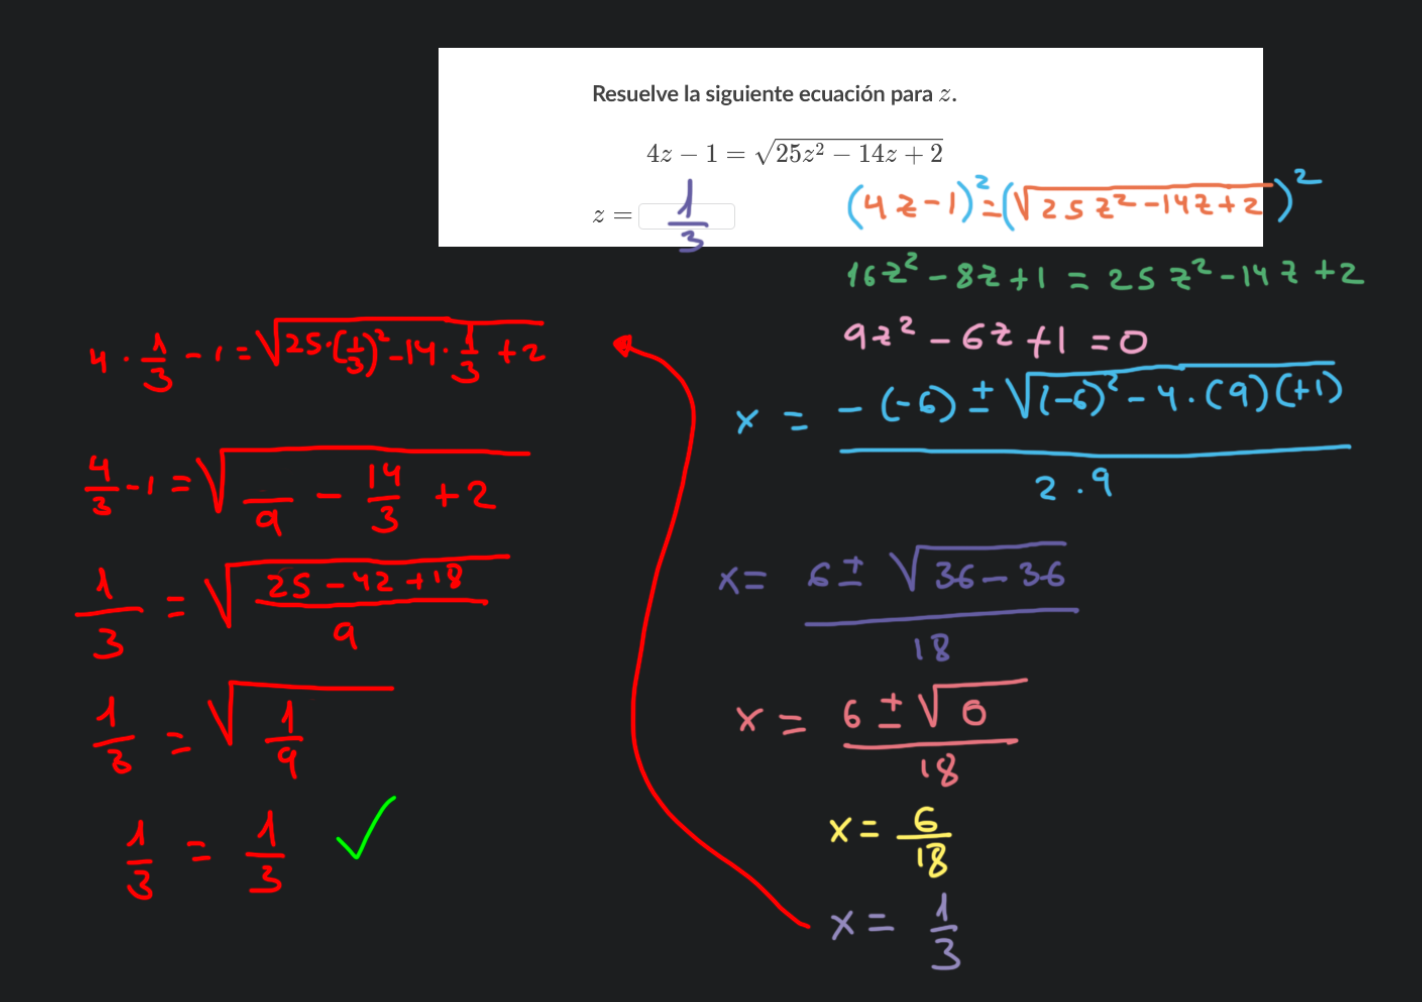 Resuelve la siguiente ecuación para z.
4z − 1 = √(25z² − 14z + 2)
z = 1/3
(4z-1)² = (√(25z²-14z+2))²
16z² - 8z + 1 = 25z² - 14z + 2
9z² - 6z + 1 = 0
x = (-(-6) ± √((-6)² - 4·(9)(+1))) / (2·9)
x = (6 ± √(36-36)) / 18
x = (6 ± √0) / 18
x = 6/18
x = 1/3
4 · 1/3 - 1 = √(25·(1/3)² - 14·1/3 + 2)
4/3 - 1 = √( /9 - 14/3 + 2)
1/3 = √((25 - 42 + 18)/9)
1/3 = √(1/9)
1/3 = 1/3 ✓